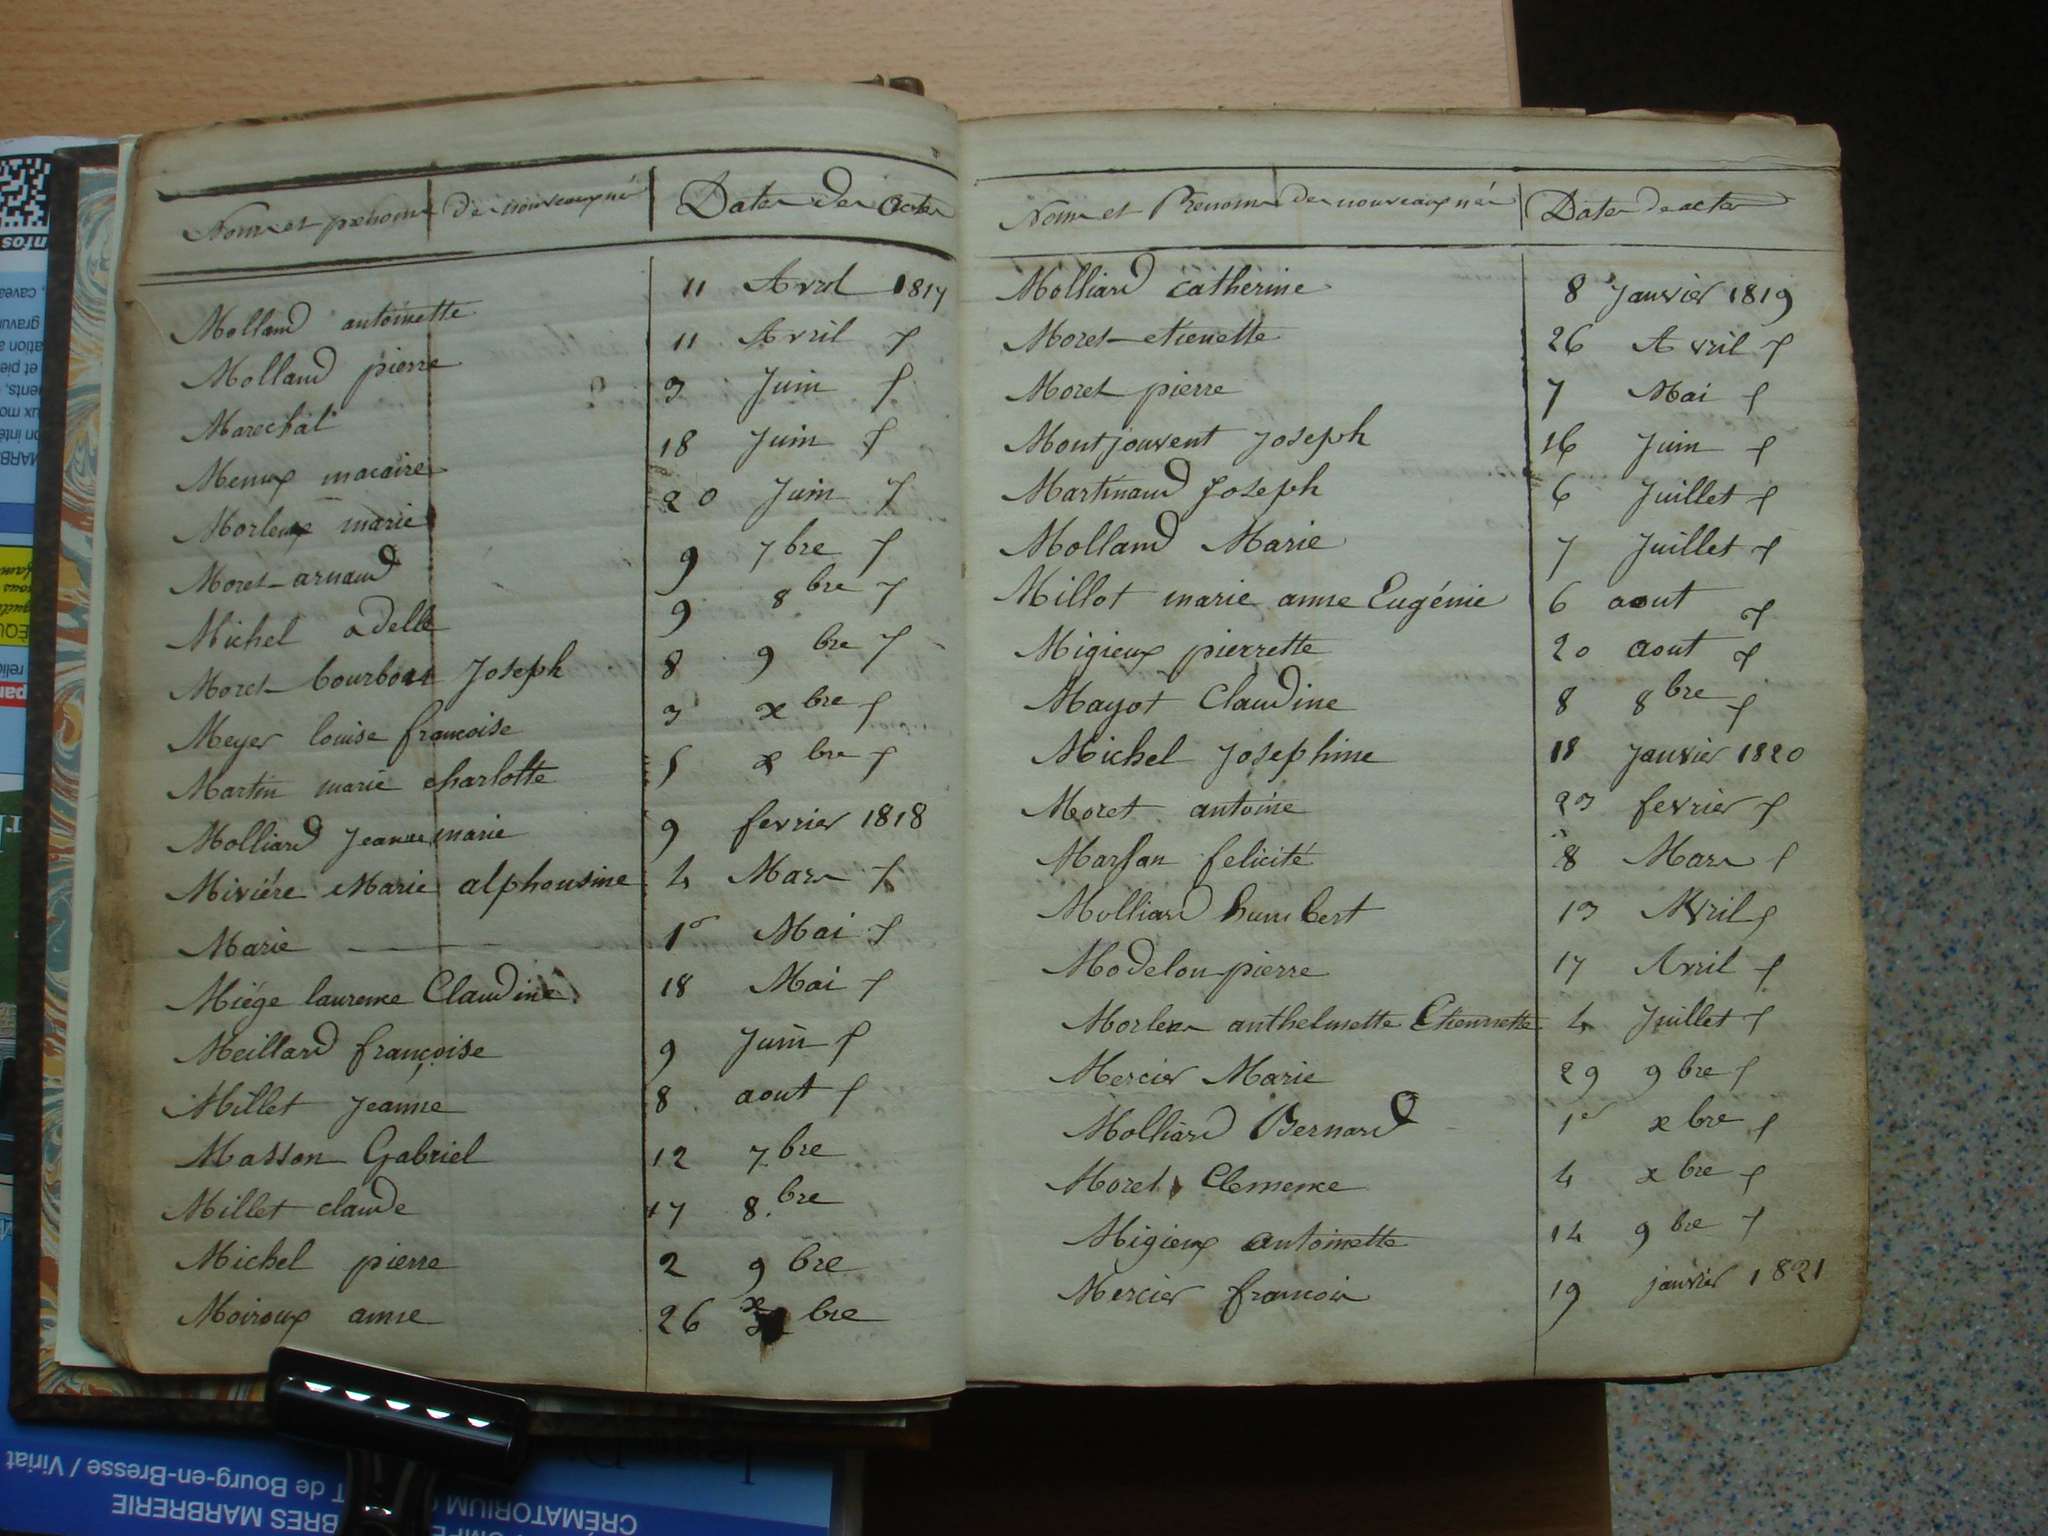 Noms et prénoms des nouveaux nés Dates des Actes
Molland antoinette 11 Avril 1817
Molland pierre 11 Avril
Marechal 3 Juin
Menux macaire 18 Juin
Morleux marie 20 Juin
Moret arnaud 9 7bre
Michel adelle 9 8bre
Moret bourbon Joseph 8 9bre
Meyer louise françoise 3 xbre
Martin marie charlotte 5 xbre
Molliard Jeanne marie 9 fevrier 1818
Miviére Marie alphonsine 4 Mars
Marie 1er Mai
Miége laurence Claudine 18 Mai
Meillard françoise 9 Juin
Millet Jeanne 8 aout
Masson Gabriel 12 7bre
Millet claude 17 8bre
Michel pierre 2 9bre
Moiroux anne 26 xbre
Noms et Prenoms des nouveaux nés Dates de actes
Molliard catherine 8 Janvier 1819
Moret etienette 26 Avril
Moret pierre 7 Mai
Montjouvent Joseph 16 Juin
Martinaud Joseph 6 Juillet
Molland Marie 7 Juillet
Millot marie anne Eugénie 6 aout
Migieux pierrette 20 aout
Mayot Claudine 8 8bre
Michel Josephine 18 Janvier 1820
Moret antoine 23 fevrier
Marsan felicité 8 Mars
Molliard humbert 13 Avril
Modelon pierre 17 Avril
Morleux anthelmette Etiennette 4 Juillet
Mercier Marie 29 9bre
Molliard Bernard 1er xbre
Moret Clemence 4 xbre
Migieux antoinette 14 9bre
Mercier francois 19 janvier 1821
CRÉMATORIUM
BRES MARBRERIE
T de Bourg-en-Bresse / Viriat